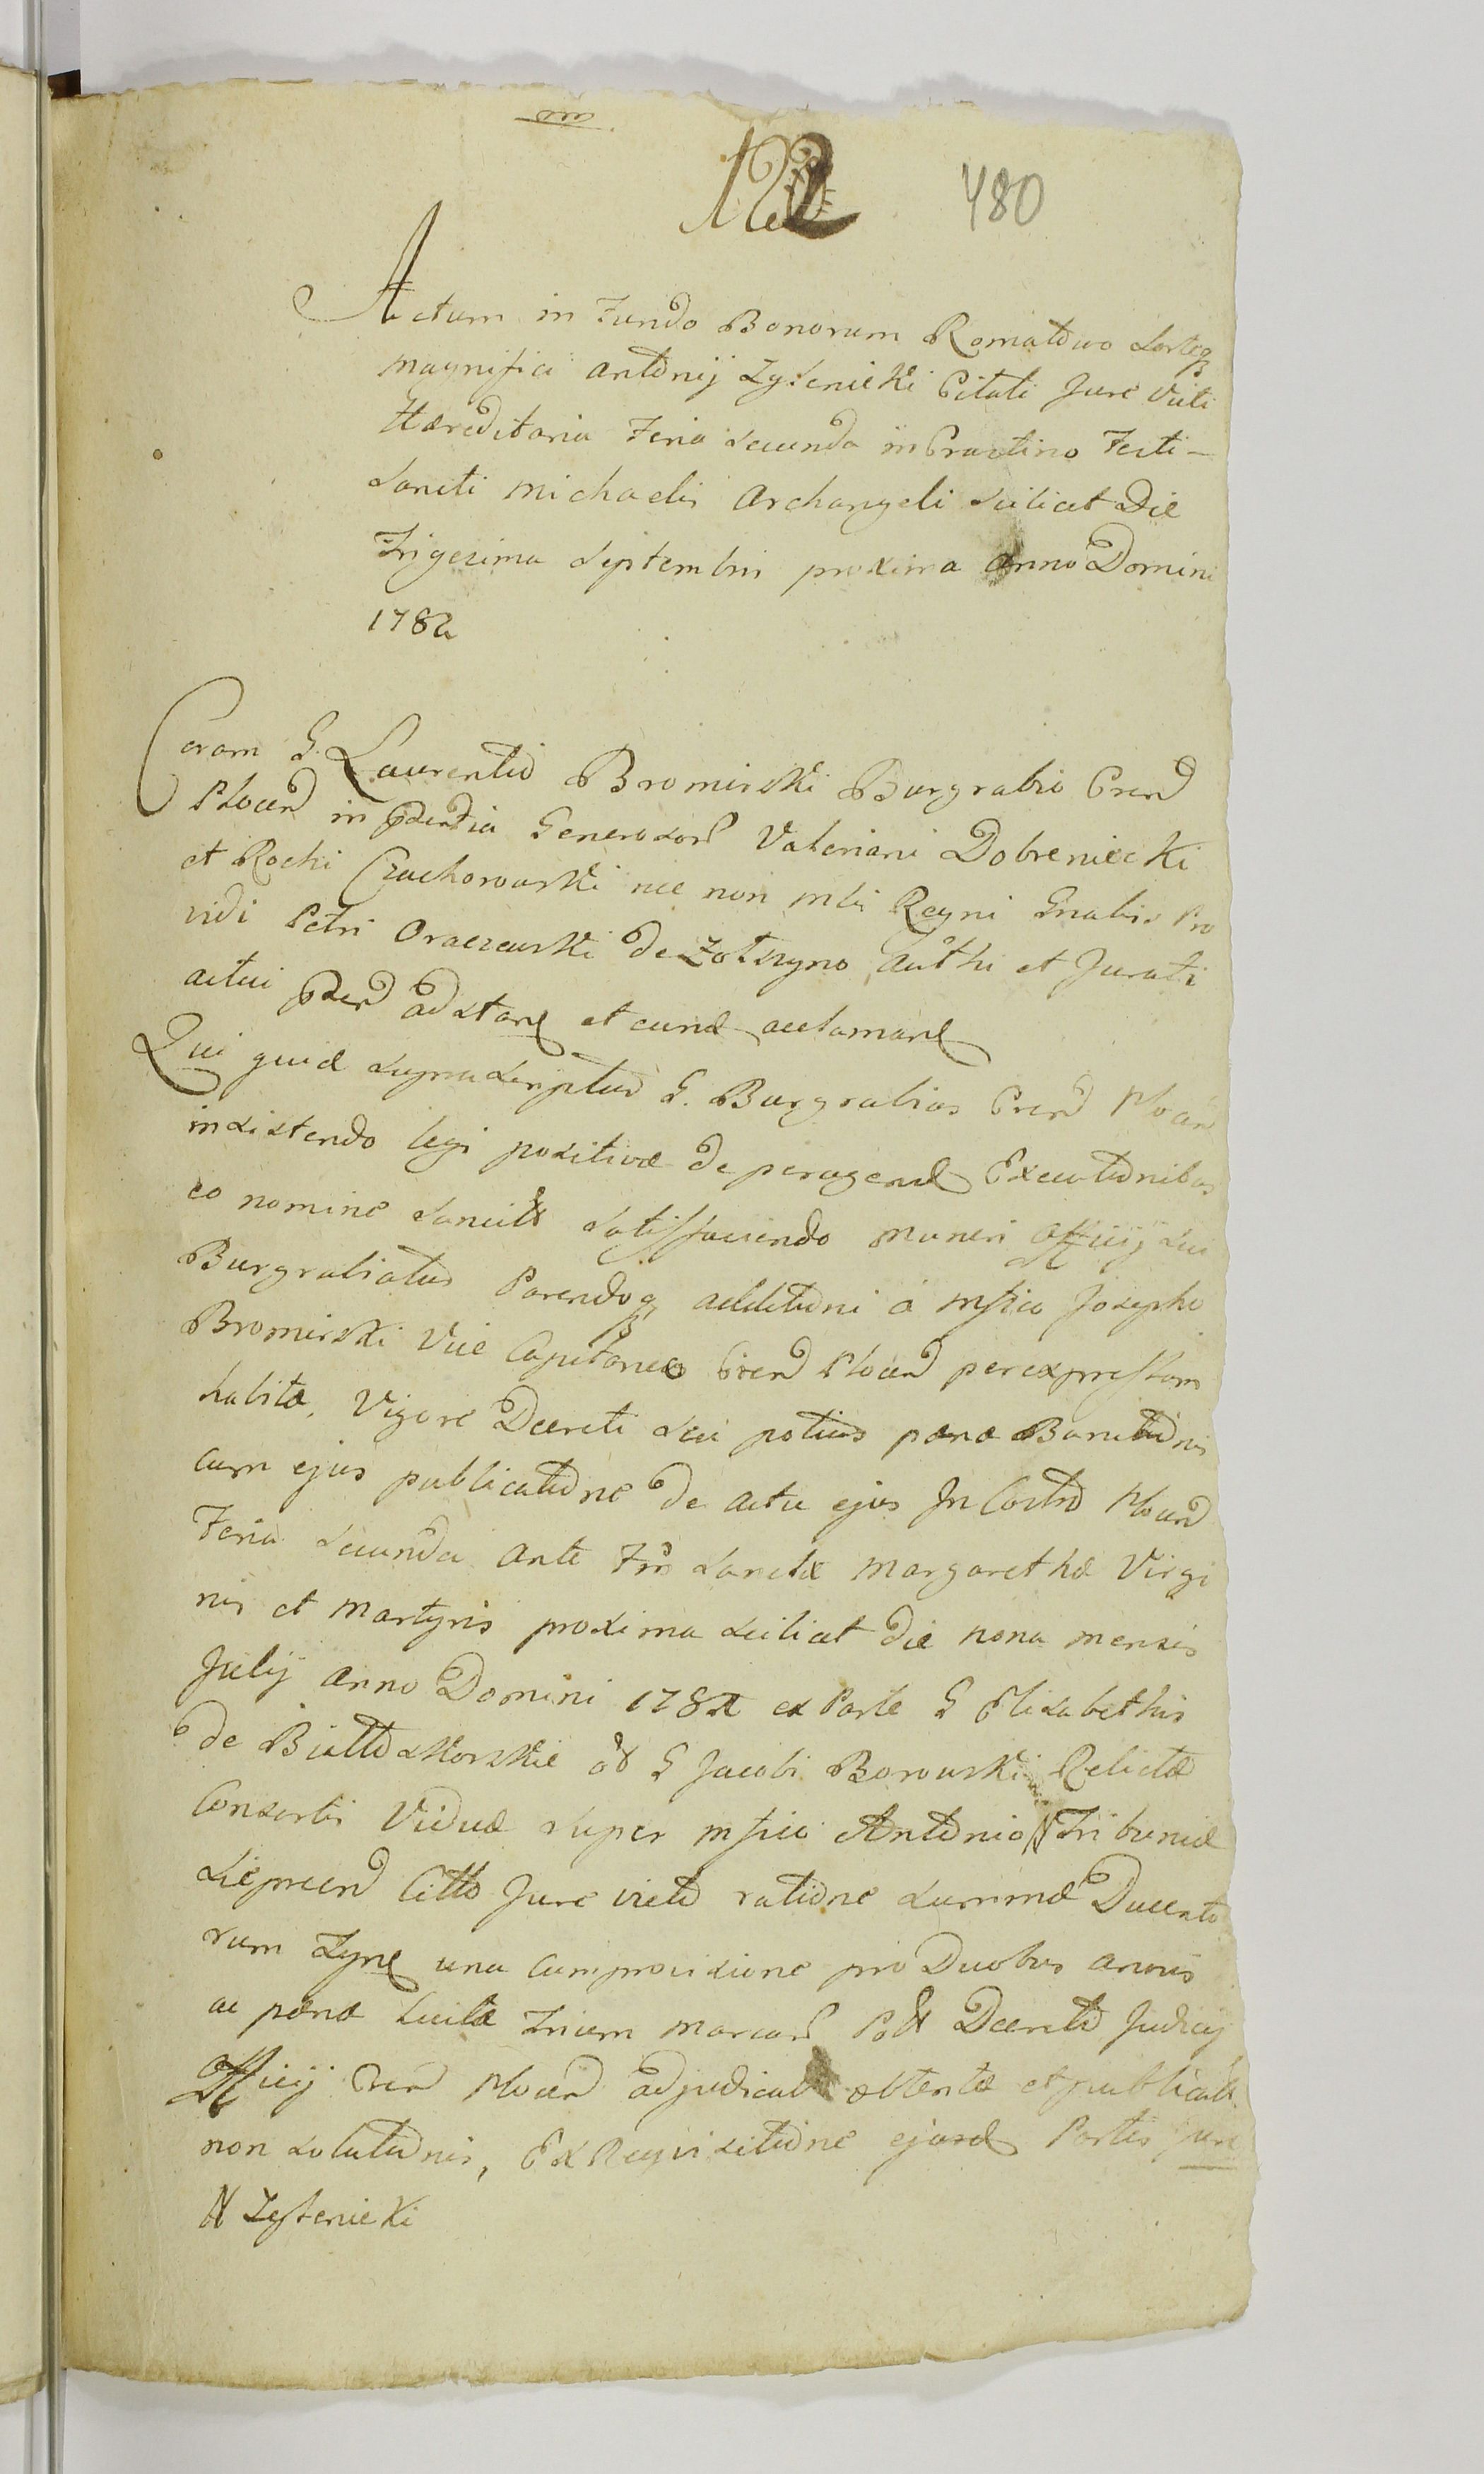 480
Actum in Fundo Bonorum Romatowo Sorteq
Magnifici Antonij Zysnicki Citati Jure Victi
Hæreditaria Feria Secunda in Crastino Festi
Sancti Michaelis Archangeli Scilicet Die
Trigesima Septembris proxima Anno Domini
1782
Coram G. Laurentio Bromirski Burgrabio Cren
Plocen in pdentia Generosor Valeriani Dobreniecki
et Rochi Czachorowski nec non mlis Regni Gnalis Pro
vidi Petri Oraczewski de authi et Jurati
actui pden adstan et eund acclaman
Qui quid supra Scriptus G. Burgrabius Cren Plocen
insistendo legi positivæ de peragend Executionibus
eo nomine Sancit Satisfaciendo muneri Officij Sui
Burgrabiatus Parendoq addictioni a mfico Josepho
Bromirski Vice Capitaneo Cren Plocen per expressam
habitæ, Vigore Decreti Seu potius pænæ Banitionis
cum ejus publicatione de actu ejus In Castro Plocen
Feria Secunda Ante Fm Sanctæ Margarethæ Virgi
nis et Martyris proxima Scilicet die nona mensis
Julij Anno Domini 1782 ex Parte G Elisabethis
de Biattoskorskie G Jacobi Borowski Relictæ
Consortis Viduæ Super mfico Antonio N Tribunid
Sieprcen Citto Jure victo ratione Summæ Ducento
rum una cum provisione pro Duobus annis
ac pæna Lucita Trium marcar Decreto Judicij
Officij Cren Plocen adjudicat obtentæ et publicat
non Solutionis, Ex Requisitione ejusd Partis Jure
N Zysnicki